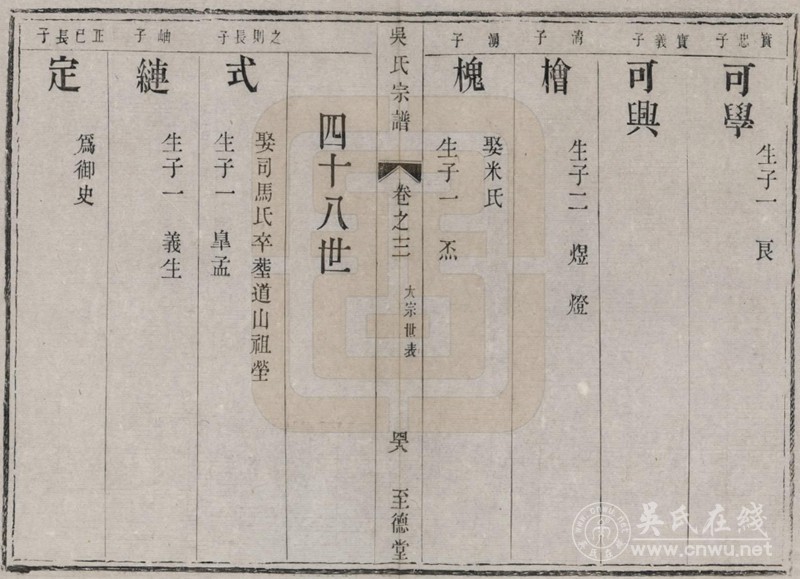 實忠子
可學
生子一 艮
實義子
可興
淓子
檜
生子二 煜 燈
淜子
槐
娶米氏
生子一 烝
吳氏宗譜
卷之三
大宗世表
至德堂
四十八世
之則長子
式
娶司馬氏卒塟道山祖塋
生子一 皐孟
岫子
縺
生子一 義生
正己長子
定
爲御史
吴氏在线
www.cnwu.net